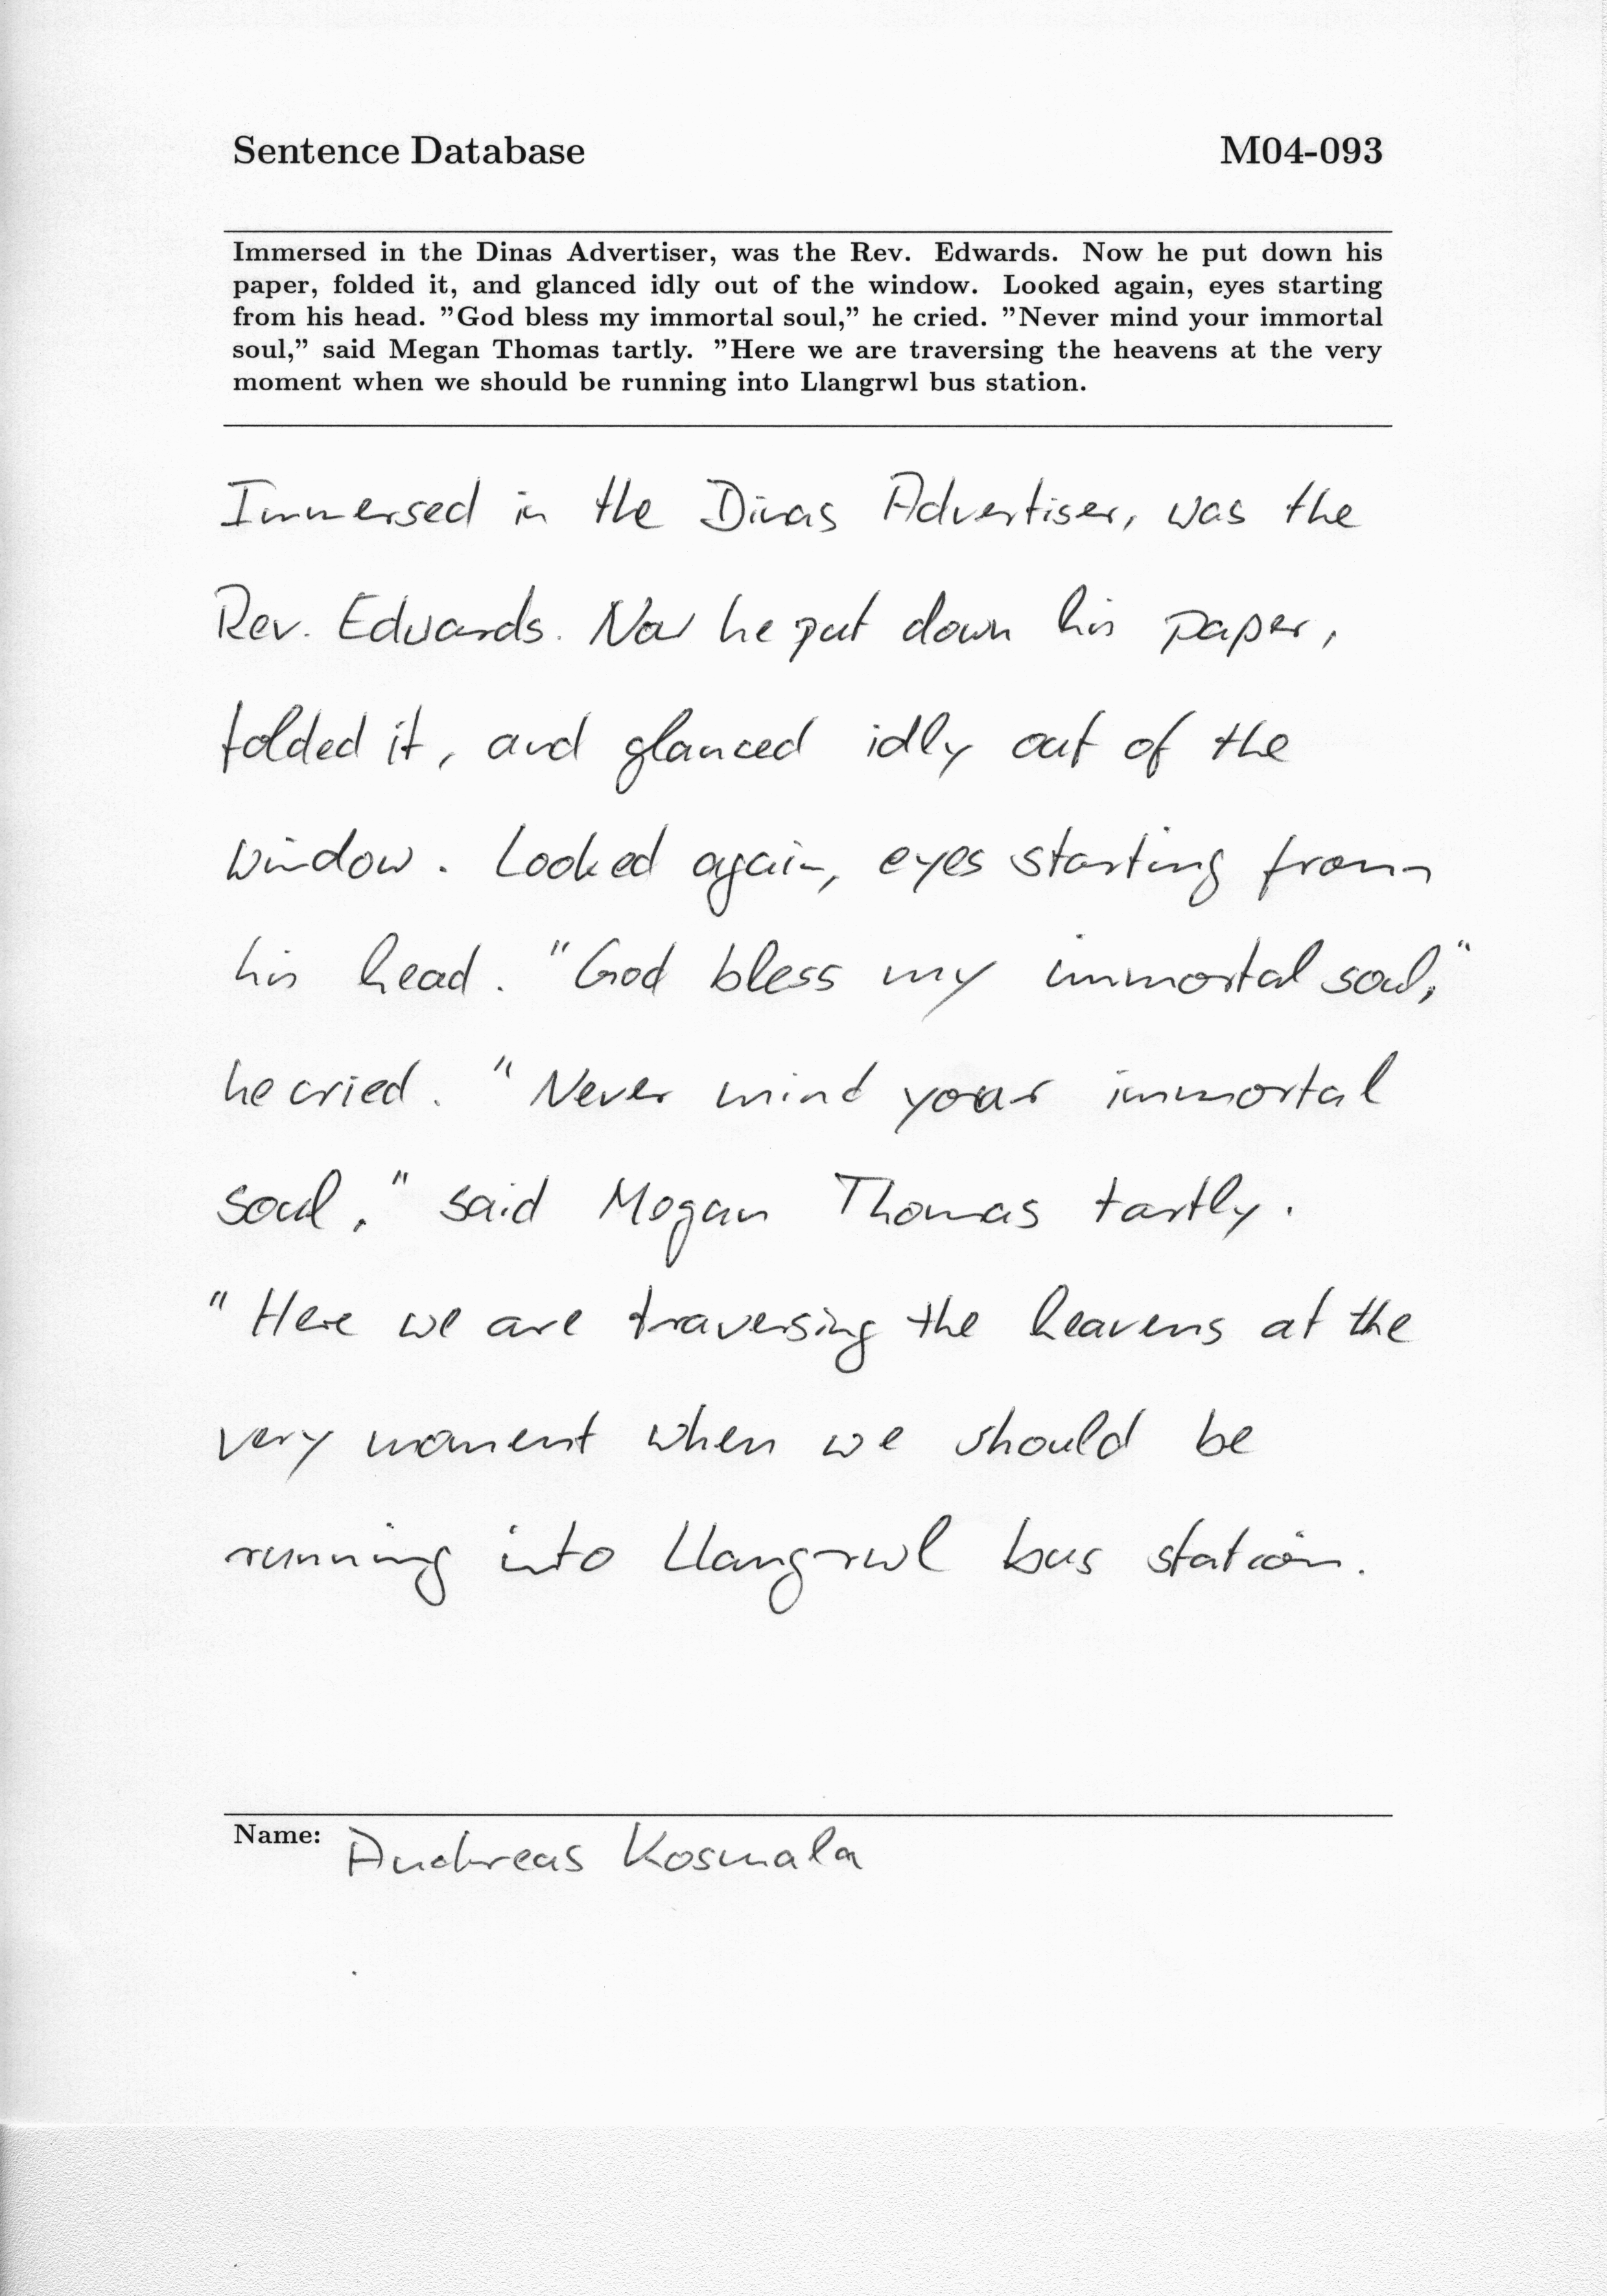 Sentence Database M04-093
Immersed in the Dinas Advertiser, was the Rev. Edwards. Now he put down his
paper, folded it, and glanced idly out of the window. Looked again, eyes starting
from his head. ”God bless my immortal soul,” he cried. ”Never mind your immortal
soul,” said Megan Thomas tartly. ”Here we are traversing the heavens at the very
moment when we should be running into Llangrwl bus station.
Immersed in the Dinas Advertiser, was the
Rev. Edwards. Now he put down his paper,
folded it, and glanced idly out of the
window. Looked again, eyes starting from
his head. "God bless my immortal soul,"
he cried. "Never mind your immortal
soul," said Megan Thomas tartly.
"Here we are traversing the heavens at the
very moment when we should be
running into Llangrwl bus station.
Name: Andreas Kosmala